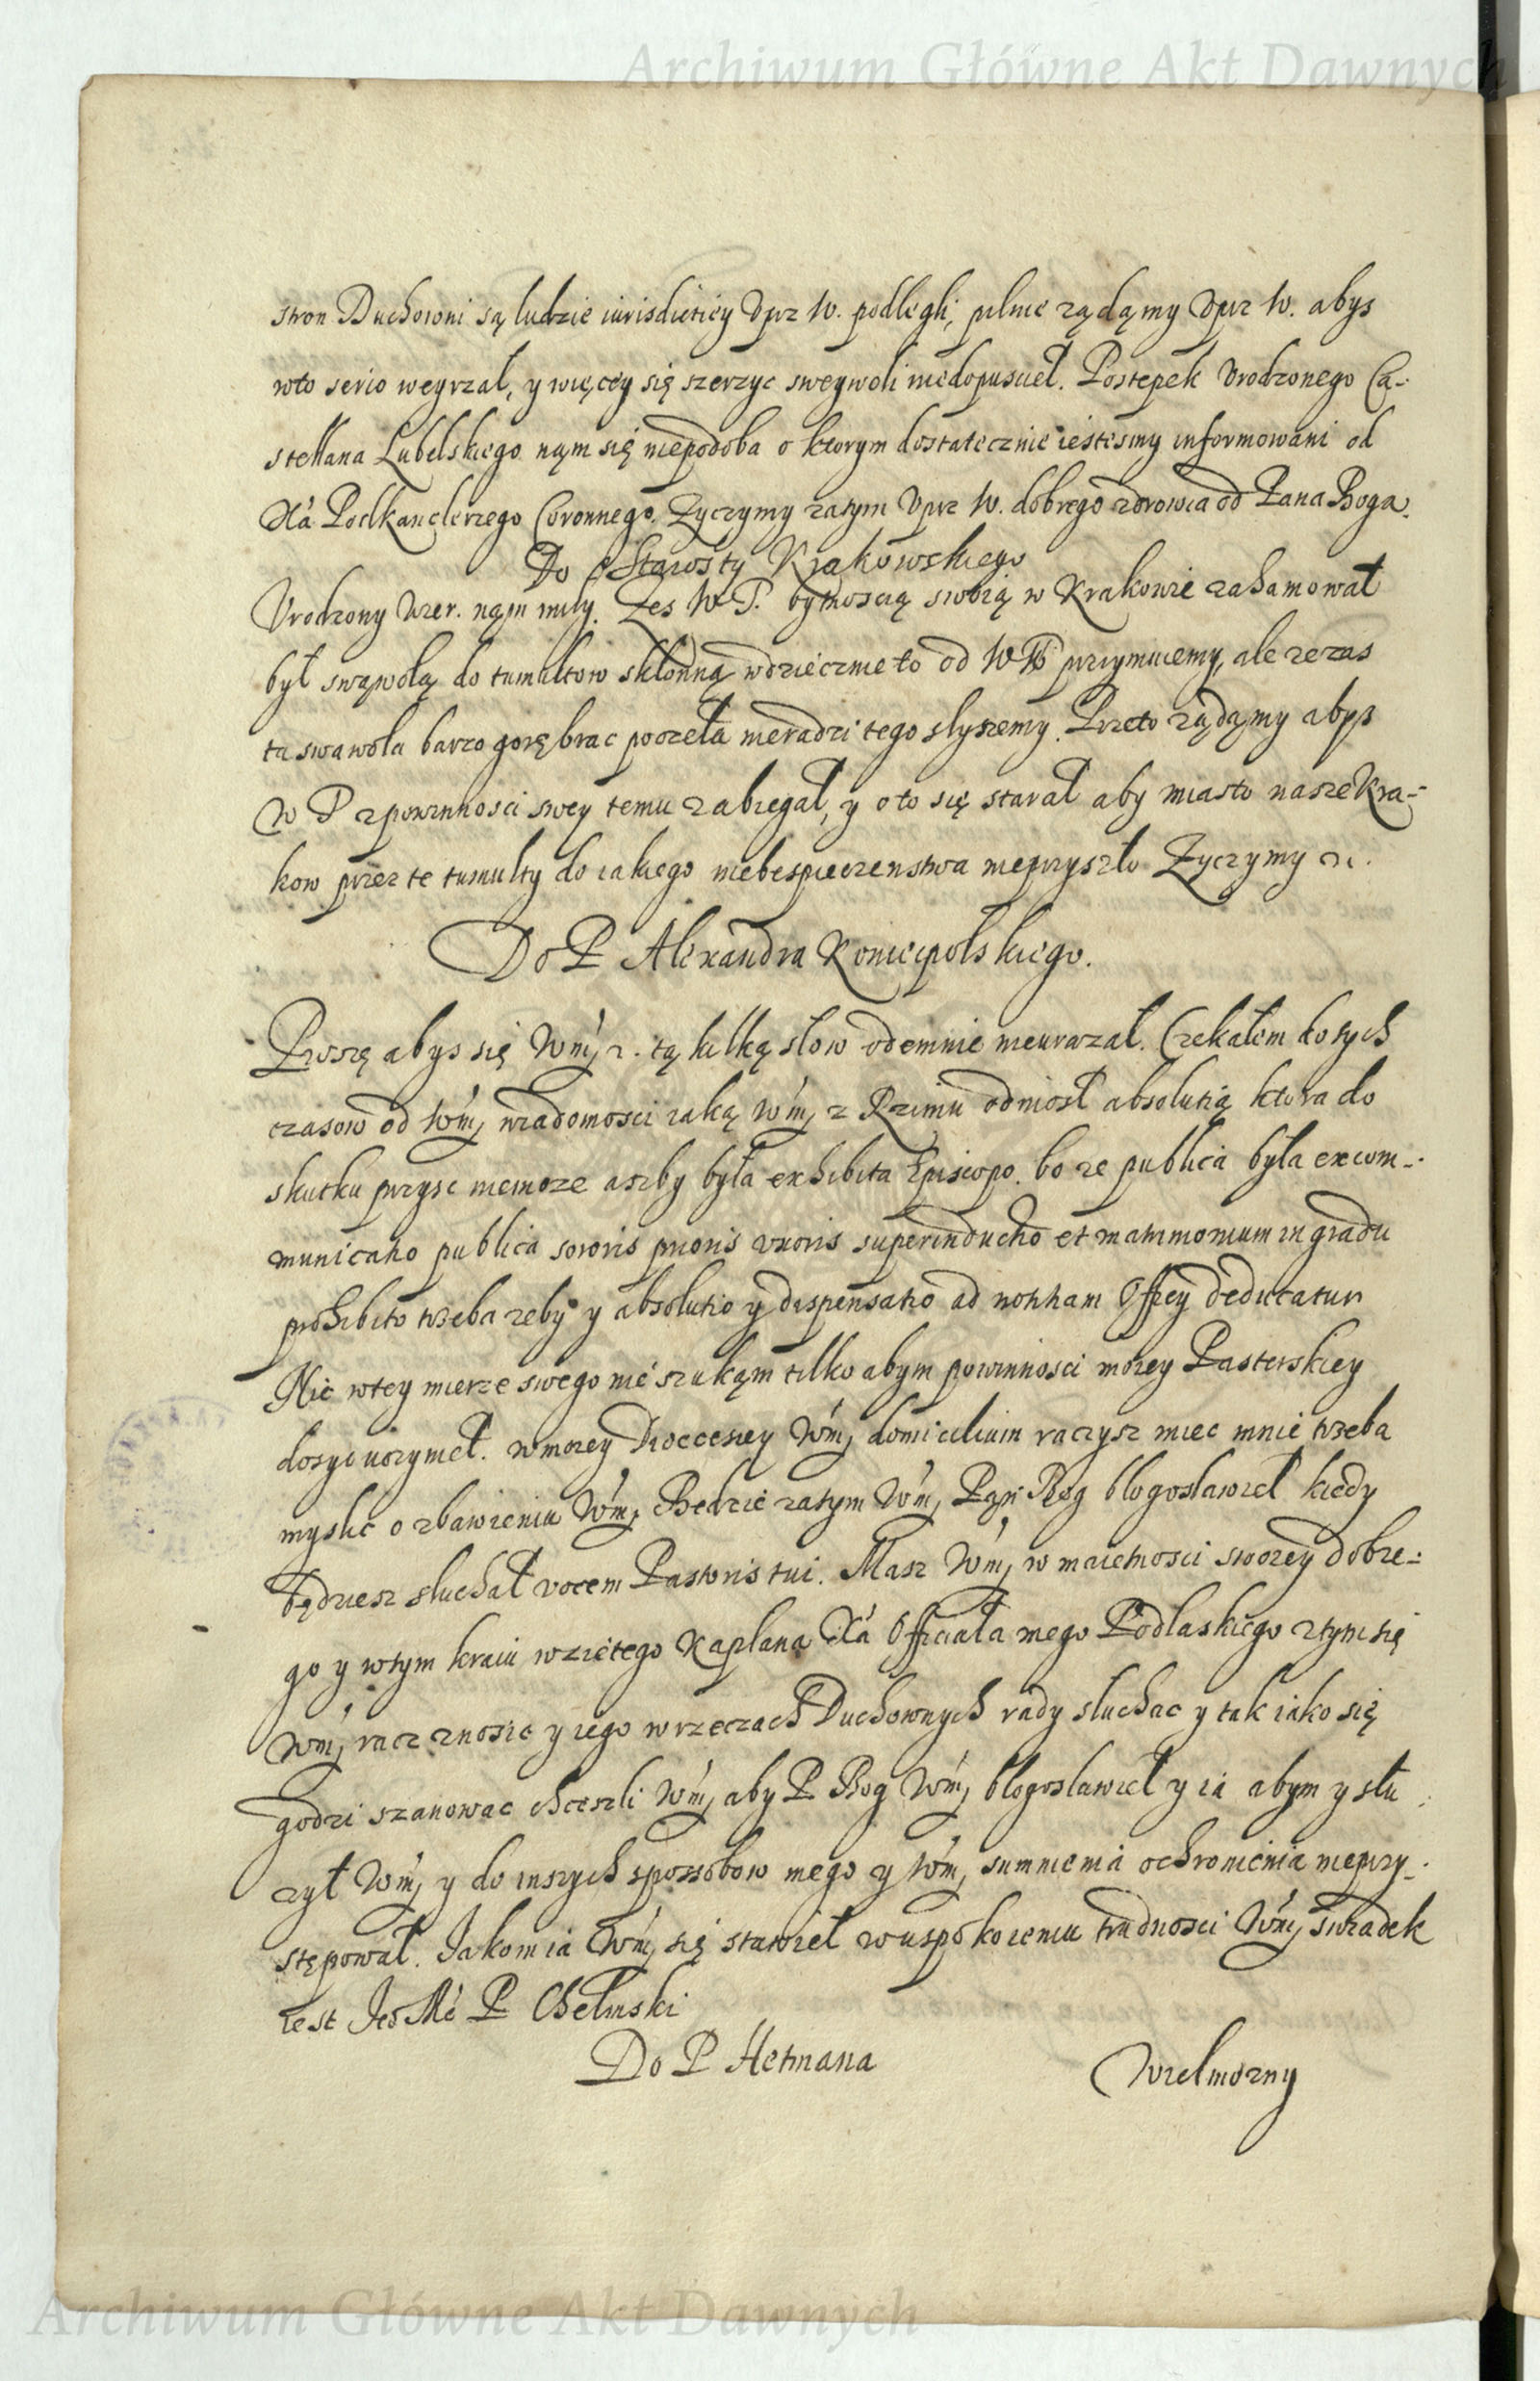 Archiwum Główne Akt Dawnych
stron Duchowni są ludzie iurisdictiey Vprz W. podlegli, pilnie ządąmy Vprz W. abys
wto serio weyrzał, y więcey się szerzyc sweywoli niedopuscieł. Postepek Vrodzonego Ca-
stellana Lubelskiego nąm się niepodoba o ktorym dostatecznie iestesmy informowani od
Xa Podkanclerzego Coronnego. Zyczymy zatym Vprz W. dobrego zdrowia od Pana Boga.
Do Starosty Krakowskiego
Vrodzony wier. nąm miły. Zes W T. bytnoscią swoią w Krakowie zahamował
był swąwolą do tumultow skłonną wdziecznie to od W T. przyimuiemy, ale ze zas
ta swawola barzo gorę brac poczeła nieradzi tego słyszemy. Przeto ządąmy abys
W T zpowinnosci swey temu zabiegał, y o to się starał aby miasto nasze Kra-
kow przez te tumulty do iakiego niebespieczenstwa nieprzyszło Zyczymy zc.
Do P Alexandra Koniecpolskiego.
Proszę abys się Wm, z. tą kilką słow odemnie nieurazał. Czekałem do tych
czasow od Wm, wiadomosci iaką Wm, z Rzimu odniosł absolutią ktora do
skutku przysc niemoze aszby była exhibita Episcopo. bo ze publica była excom-
municatio publica sororis prioris vxoris superinductio et matrimonium in gradu
prohibito trzeba zeby y absolutio y dispensatio ad notitiam Officy deducatur
Nic wtey mierze swego nie szukąm tilko abym powinnosci moiey Pasterskiey
dosyc uczynieł. wmoiey Dioecesiey Wm, domicilium raczysz miec mnie trzeba
myslic o zbawieniu Wm, Bedzie zatym Wm, Pąn Bog błogosławieł kiedy
będziesz słuchał vocem Pastoris tui. Masz Wm, w maietnosci swoiey dobre-
go y wtym kraiu wzietego Kapłana Xa Officiała mego Podlaskiego ztym się
Wm, racz znosic y iego wrzeczach Duchownych rady słuchac y tak iako się
godzi szanowac chceszli Wm, aby P Bog Wm, błogosławieł y ia abym y słu
zył Wm, y do inszych sposobow mego y Wm, sumnienia ochronienia nieprzy-
stępował. Jakom ia Wm, się stawieł wuspokoieniu trudnosci Wm, swiadek
iest Jeo Mc P Chełmski
Do P Hetmana
Wielmozny
Archiwum Główne Akt Dawnych